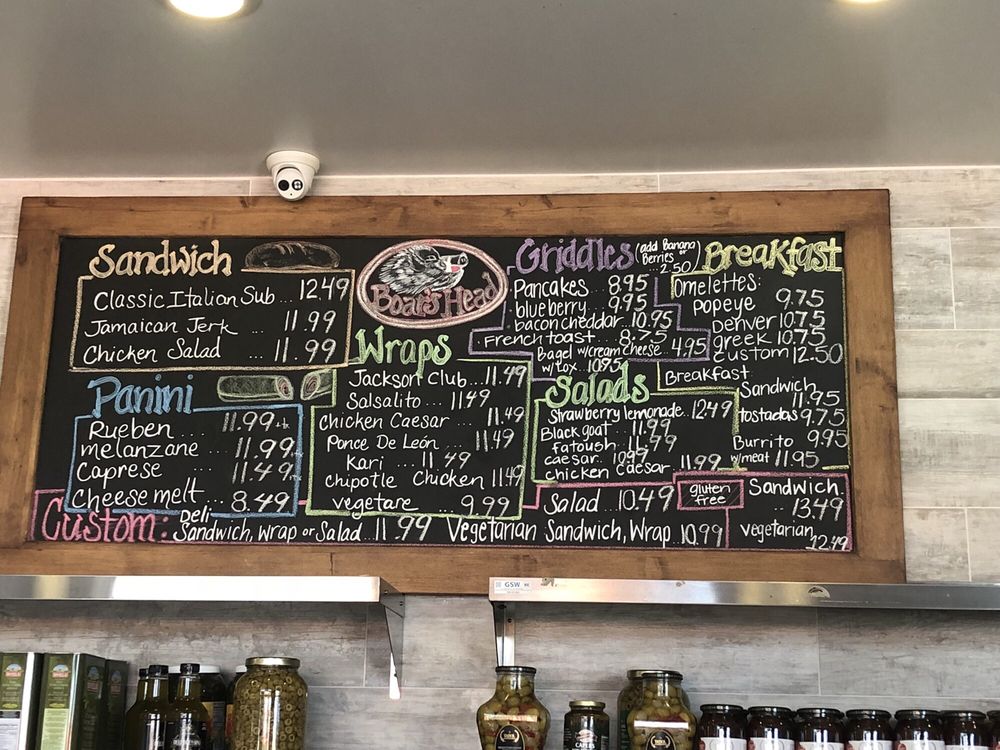 Sandwich
Classic Italian Sub... 12.49
Jamaican Jerk ... 11.99
Chicken Salad ... 11.99
Panini
Rueben .... 11.99
melanzane ... 11.99
Caprese ... 11.49
Cheese melt... 8.49
Boar's Head
Wraps
Jackson Club...11.49
Salsalito... 11.49
Chicken Caesar .... 11.49
Ponce De León ... 11.49
Kari ... 11.49
Chipotle Chicken 11.49
Vegetare ... 9.99
Griddles (add Banana
Berries or)
... 2.50
Pancakes .. 8.95
· blueberry.. 9.95
· bacon cheddar... 10.95
· French toast ... 8.75
Bagel w/cream cheese 4.95
w/lox .. 10.95
Salads
Strawberry lemonade.. 12.49
Black goat .. 11.99
fatoush ... 11.99
caesar.. 10.99
chicken caesar . 11.99
Breakfast
Omelettes:
popeye 9.75
Denver 10.75
greek 10.75
custom 12.50
Breakfast
Sandwich
11.95
tostadas 9.75
Burrito 9.95
w/meat 11.95
Custom: Deli
Sandwich, Wrap or Salad...11.99
Vegetarian Sandwich, Wrap..10.99
Salad .. 10.49
gluten free
Sandwich
.. 13.49
vegetarian
12.49
GSW
CAPERS